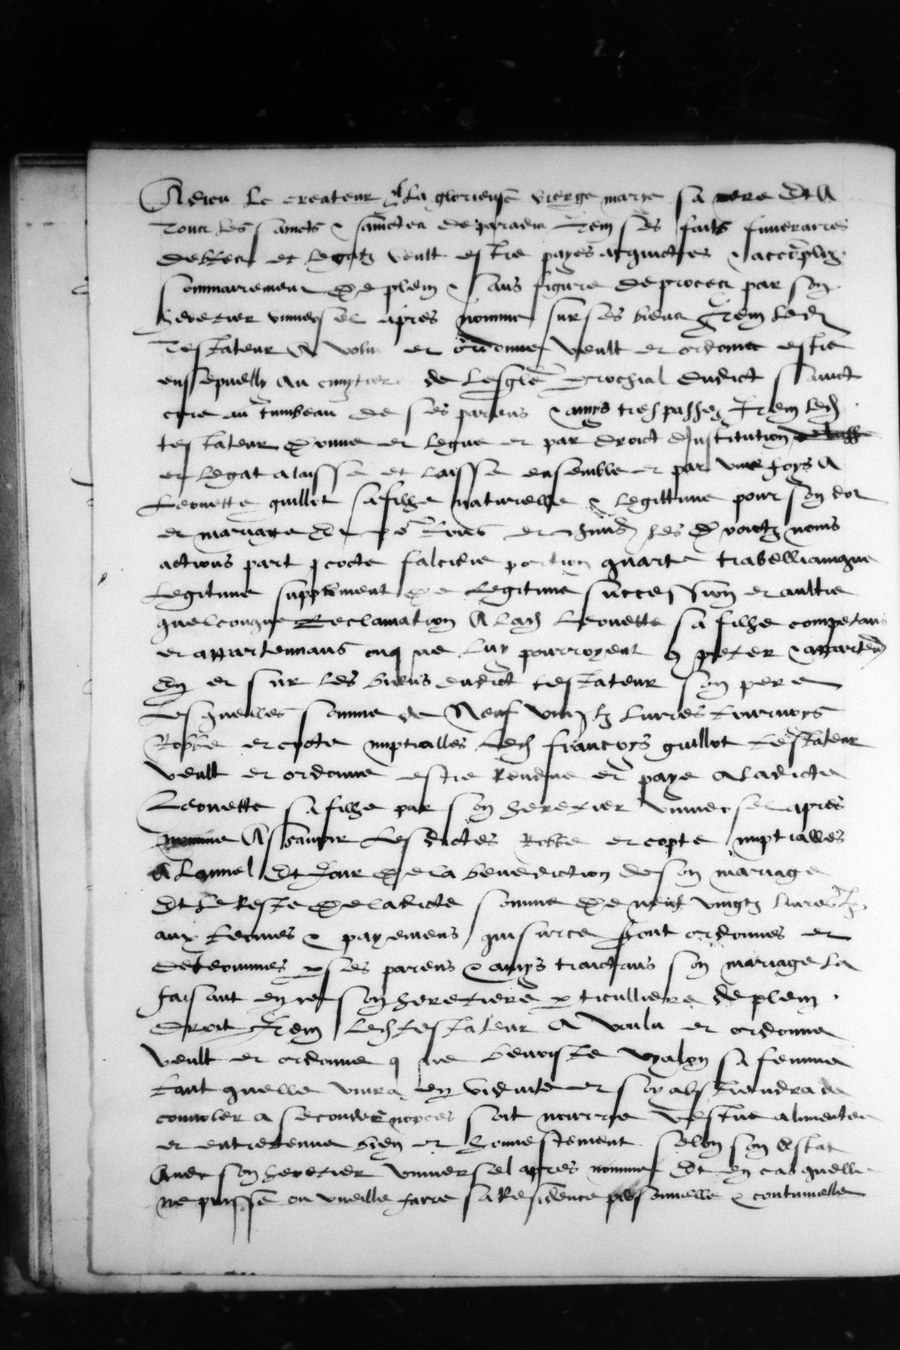 A dieu le createur A la glorieuse vierge marye sa mere Et A
Tous les saincts & sainctes de paradis Item ses faits funerarres
debtes et legatz veult estre payes acquictes & accomplis
sommairement & de plein & sans figure de proces par son
heretier universel apres nomme sur ses biens Item led
Testateur A volu et ordonne veult et ordonne estre
ensepuelly au cimytiere de lesglise parrochial dudict sainct
cire au tumbeau de ses parens & amys trespasses Item led
testateur donne et legue et par droict dinstitution
et legat a laisse et laisse ensemble et par une foys A
Leonette guillot sa fille naturelle & legittime pour son dot
et mariage et pour tous et chascuns ses droictz noms
actions part cocte falcidie portion quarte trabellianique
legitime supplement de legitime succession et aultre
quelconque Reclamation A lad Leonette sa fille competans
et appartennans ou que luy pourroyent competer & apparten
En et sur les biens dudict testateur son pere
Lesquelles somme de Neuf vingtz livres tournoys
Robbe et cocte nuptialles led francoys guillot testateur
veult et ordonne estre rendue et paye a ladicte
Leonette sa fille par son heretier universel apres
nomme Assavoir lesdictes Robbe et copte nuptialles
A lannel Et Jour de la benediction de son mariage
Et le Reste de ladicte somme de neuf vingtz livres tz
aux termes & payemens qui sur ce seront ordonnes et
determines par ses parens & amys traictans son mariage la
faisant en ce son heretiere particulliere de plein
droit Item led testateur A voulu et ordonne
veult et ordonne que benoiste vyalon sa femme
tant quelle vivra en viduite et soy abstiendra de
convoler a secondes nopces soit nourrie vestue alimentee
et entretenue bien et honnestement selon son estat
Avec son heretier universel apres nomme Et en cas quelle
ne puisse ou vueille faire sa Residence personnelle & continuelle